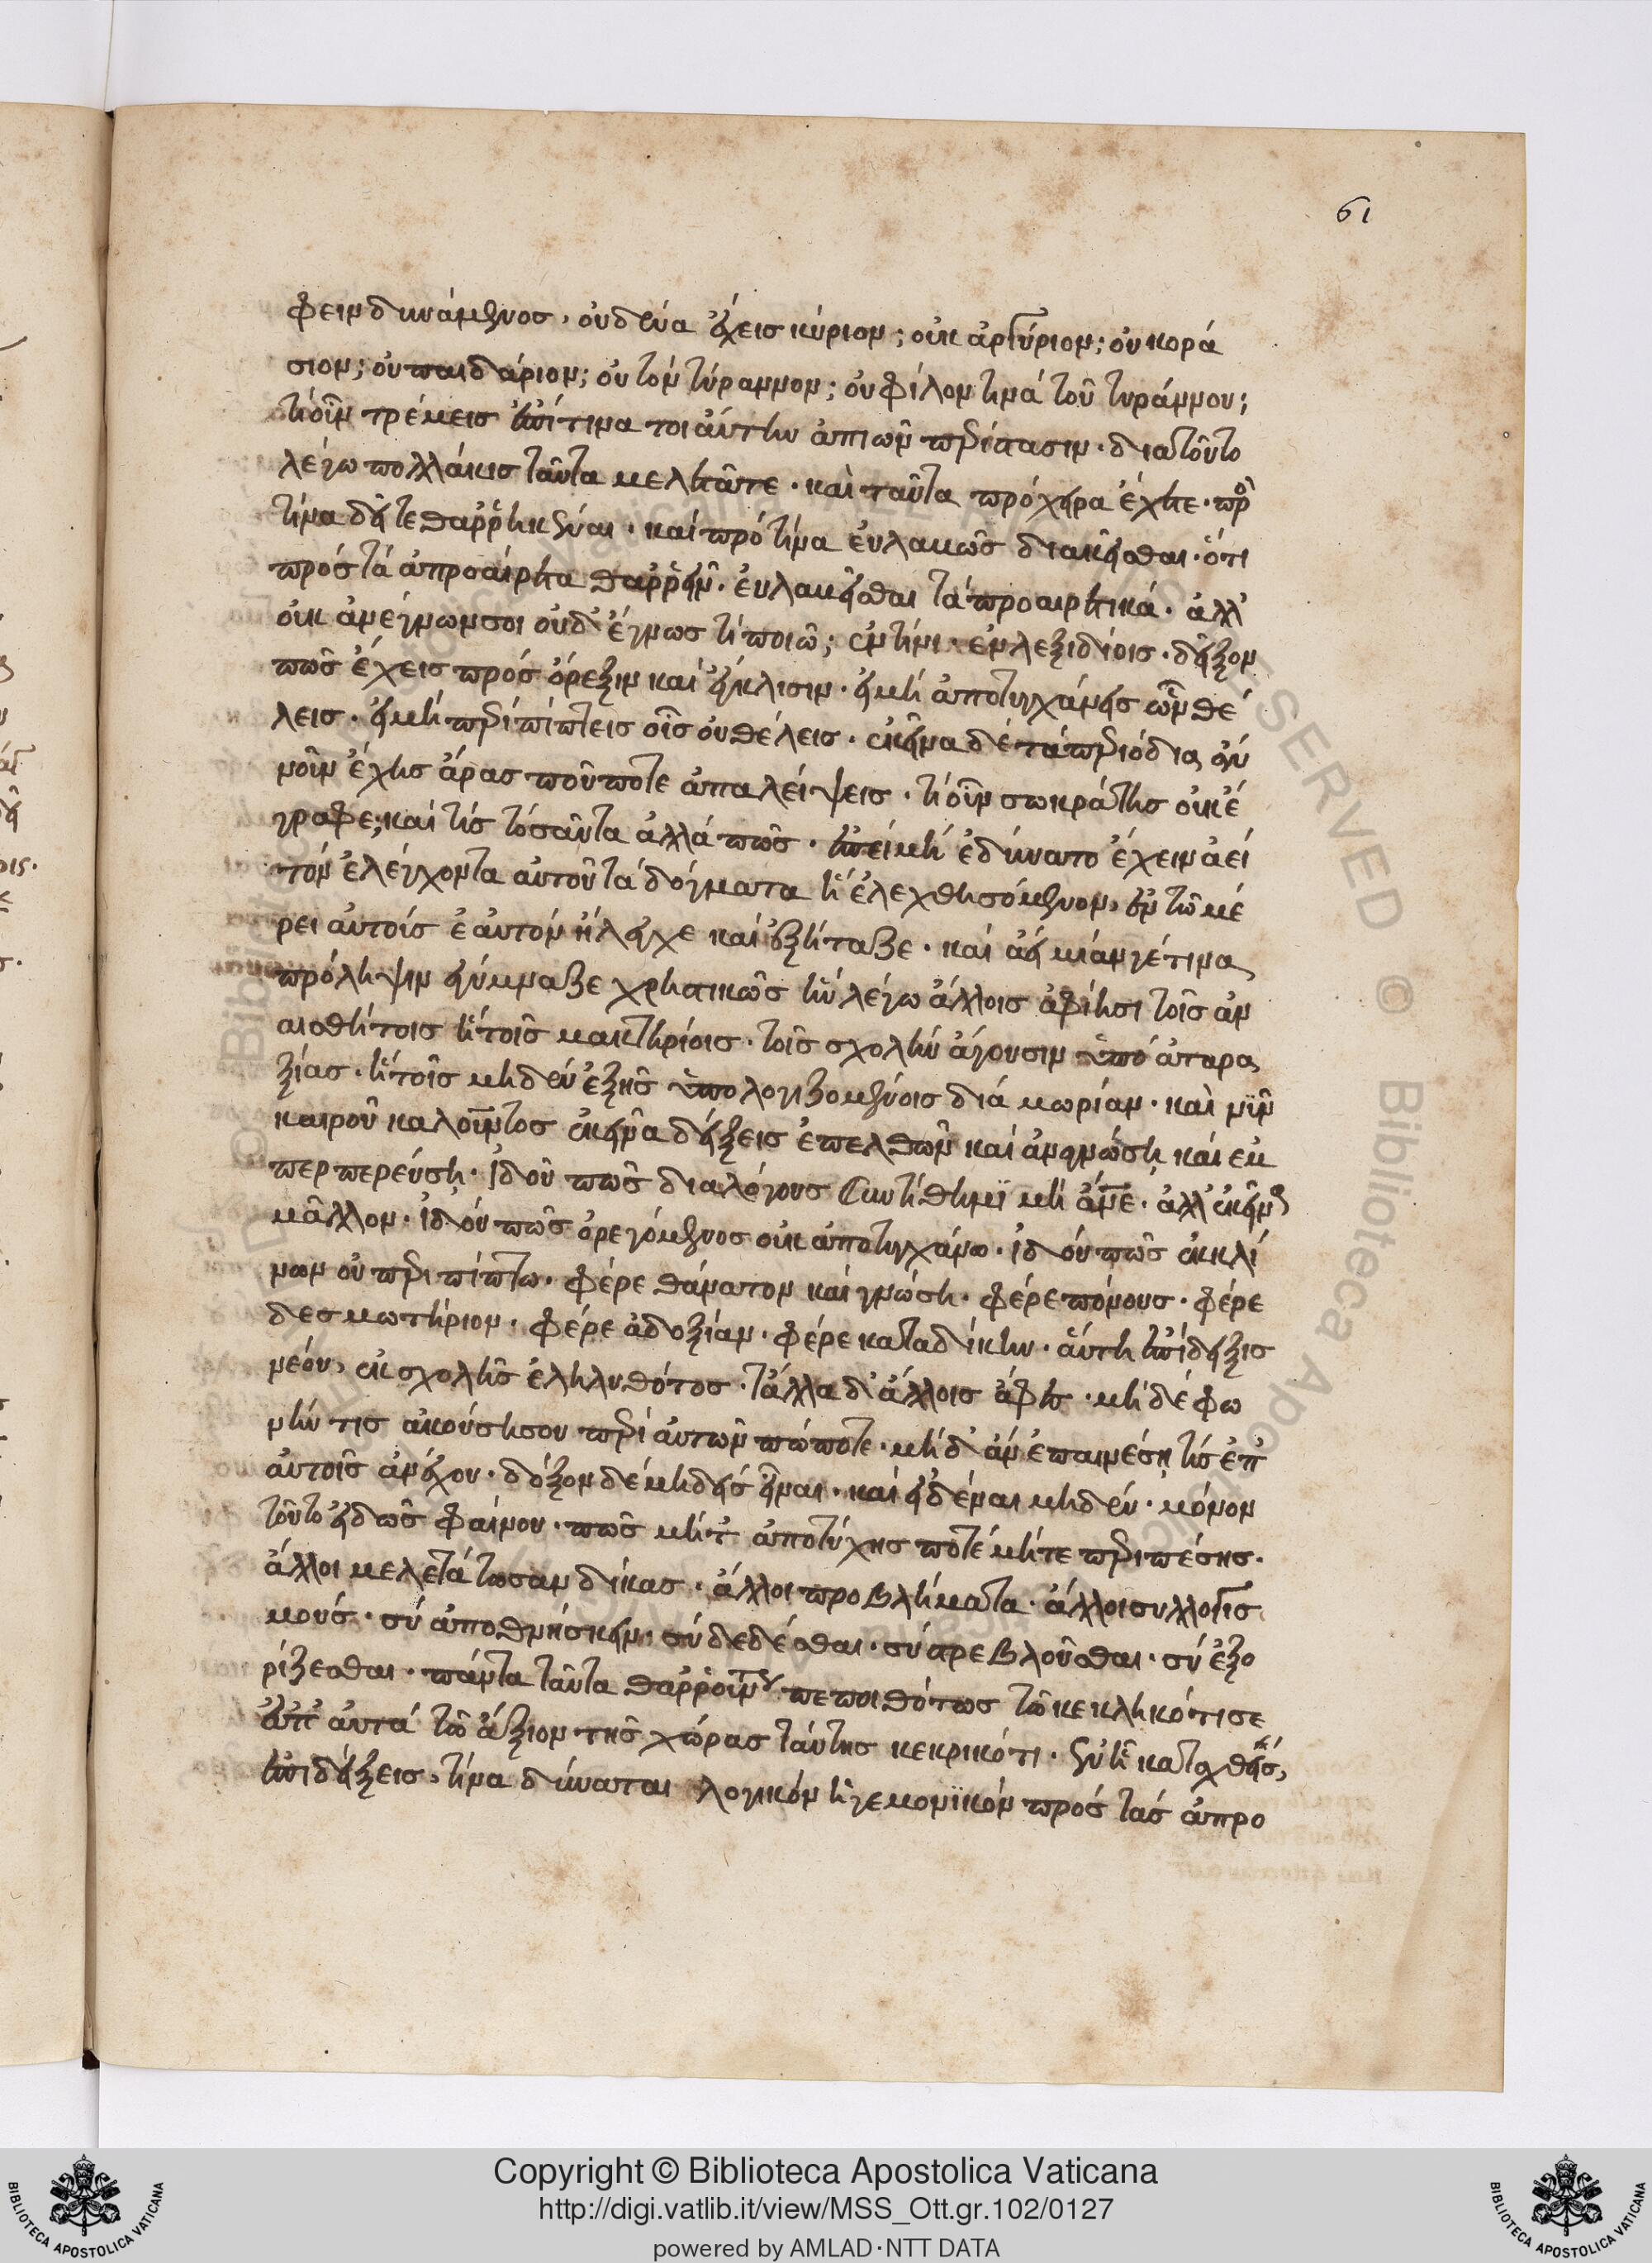 61
φειν δυνάμενος. οὐδένα ἔχεις κύριον; οὐκ ἀργύριον; οὐ κορά
σιον; οὐ παιδάριον; οὐ τὸν τύραννον; οὐ φίλον τινά τοῦ τυράννου;
τί οὖν τρέμεις ἐπί τινα τοιάυτην ἀπιὼν περίστασιν. διατοῦτο
λέγω πολλάκις ταῦτα μελετᾶτε. καὶ ταῦτα πρόχειρα ἔχετε. πρὸ
τίνα δεῖ τεθαρρηκέναι. καί πρό τίνα ἐυλαβῶς διακεῖσθαι. ὅτι
πρός τά ἀπροαίρετα θαρρεῖν. ἐυλαβεῖσθαι τά προαιρετικά. ἀλλ'
οὐκ ἀνέγνων σοι οὐδ' ἔγνως τί ποιῶ; ἐν τίνι. ἐν λεξιδίοις. δεῖξον
πῶς ἔχεις πρός ὄρεξιν καί ἔκκλισιν. εἰ μή ἀποτυγχάνεις ὧν θέ
λεις. εἰ μή περιπίπτεις οἷς οὐ θέλεις. ἐκεῖνα δέ τά περιόδια ἐύ
νοῦν ἔχης ἄρας ποῦ ποτε ἀπαλείψεις. τί οὖν σωκράτης οὐκ ἔ
γραφε; καί τίς τοσαῦτα ἀλλά πῶς. ἐπεί μή ἐδύνατο ἔχειν ἀεί
τόν ἐλέγχοντα αὐτοῦ τά δόγματα ἤ ἐλεχθησόμενον, ἐν τῷ μέ
ρει αὐτοίς ἑαυτόν ἤλεγχε καί ἐξήταζε. καί ἀεί μίαν γέ τινα
πρόληψιν γύμναζε χρηστικῶς ἥν λέγω ἄλλοις ἀφίησι τοῖς ἀν
αισθήτοις ἤ τοῖς μακτηρίοις. τοῖς σχολήν ἄγουσιν ὑπό ἀταρα
ξίας. ἤ τοῖς μηδέν ἑξῆς ὑπολογιζομένοις διά μωρίαν. καὶ νῦν
καιροῦ καλοῦντος ἐκεῖνα δείξεις ἐπελθὼν καί ἀναγνώσῃ καί ἐμ
περπερεύσῃ. ἰδοῦ πῶς διαλόγους συντίθημι μή ἄνθρωπε. ἀλλ' ἐκεῖνα
μᾶλλον. ἰδού πῶς ὀρεγόμενος οὐκ ἀποτυγχάνω. ἰδού πῶς ἐκκλί
νων οὐ περιπίπτω. φέρε θάνατον καί γνώσῃ. φέρε πόνους. φέρε
δεσμωτήριον. φέρε ἀδοξίαν. φέρε καταδίκην. ἅυτη ἐπίδειξις
νέου, ἐκ σχολῆς ἐληλυθότος. τἄλλα δ' ἄλλοις ἄφες. μή δέ φω
νήν τις ἀκούσῃ σου περί αὐτῶν πώποτε. μή δ' ἄν ἐπαινέσῃ τίς ἐπ'
αὐτοῖς ἀνέχου. δόξον δέ μηδείς εἶναι. καί εἰδέναι μηδέν. μόνον
τοῦτο εἰδὼς φαίνου. πῶς μήτε ἀποτύχης ποτέ μήτε περιπέσης.
ἄλλοι μελετάτωσαν δίκας. ἄλλοι προβλήματα. ἄλλοι συλλογισ
μούς. σύ ἀποθνήσκειν. σύ δεδέσθαι. σύ στρεβλοῦσθαι. σύ ἐξο
ρίζεσθαι. πάντα ταῦτα θαρρούντως πεποιθότως τῷ κεκληκότι σε
ἐπ' αὐτά τῷ ἄξιον τῆς χώρας ταύτης κεκρικότι. ἐν ᾗ καταχθείς,
ἐπιδείξεις, τίνα δύναται λογικόν ἡγεμονικόν πρός τάς ἀπρο
Copyright © Biblioteca Apostolica Vaticana
http://digi.vatlib.it/view/MSS_Ott.gr.102/0127
powered by AMLAD·NTT DATA
BIBLIOTECA APOSTOLICA VATICANA
BIBLIOTECA APOSTOLICA VATICANA